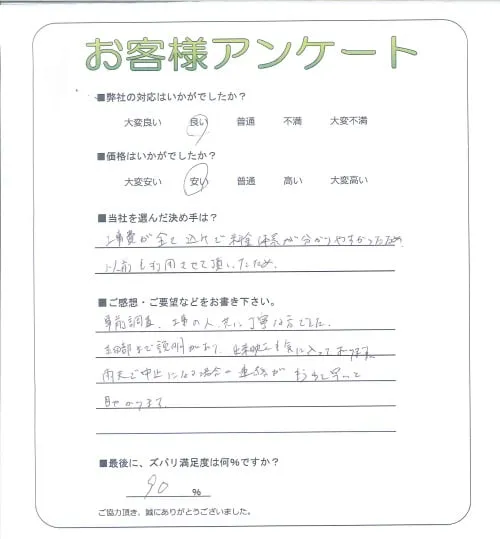 お客様アンケート
■弊社の対応はいかがでしたか？
大変良い 良い 普通 不満 大変不満
■価格はいかがでしたか？
大変安い 安い 普通 高い 大変高い
■当社を選んだ決め手は？
工事費が全て込みで料金体系が分かりやすかったため
以前も利用させて頂いたため
■ご感想・ご要望などをお書き下さい。
事前調査、工事の人、共に丁寧な方でした。
細部まで説明があり、出来映えも気に入っております。
雨天で中止になる場合の連絡がもう少し早いと
助かります。
■最後に、ズバリ満足度は何％ですか？
90 %
ご協力頂き、誠にありがとうございました。